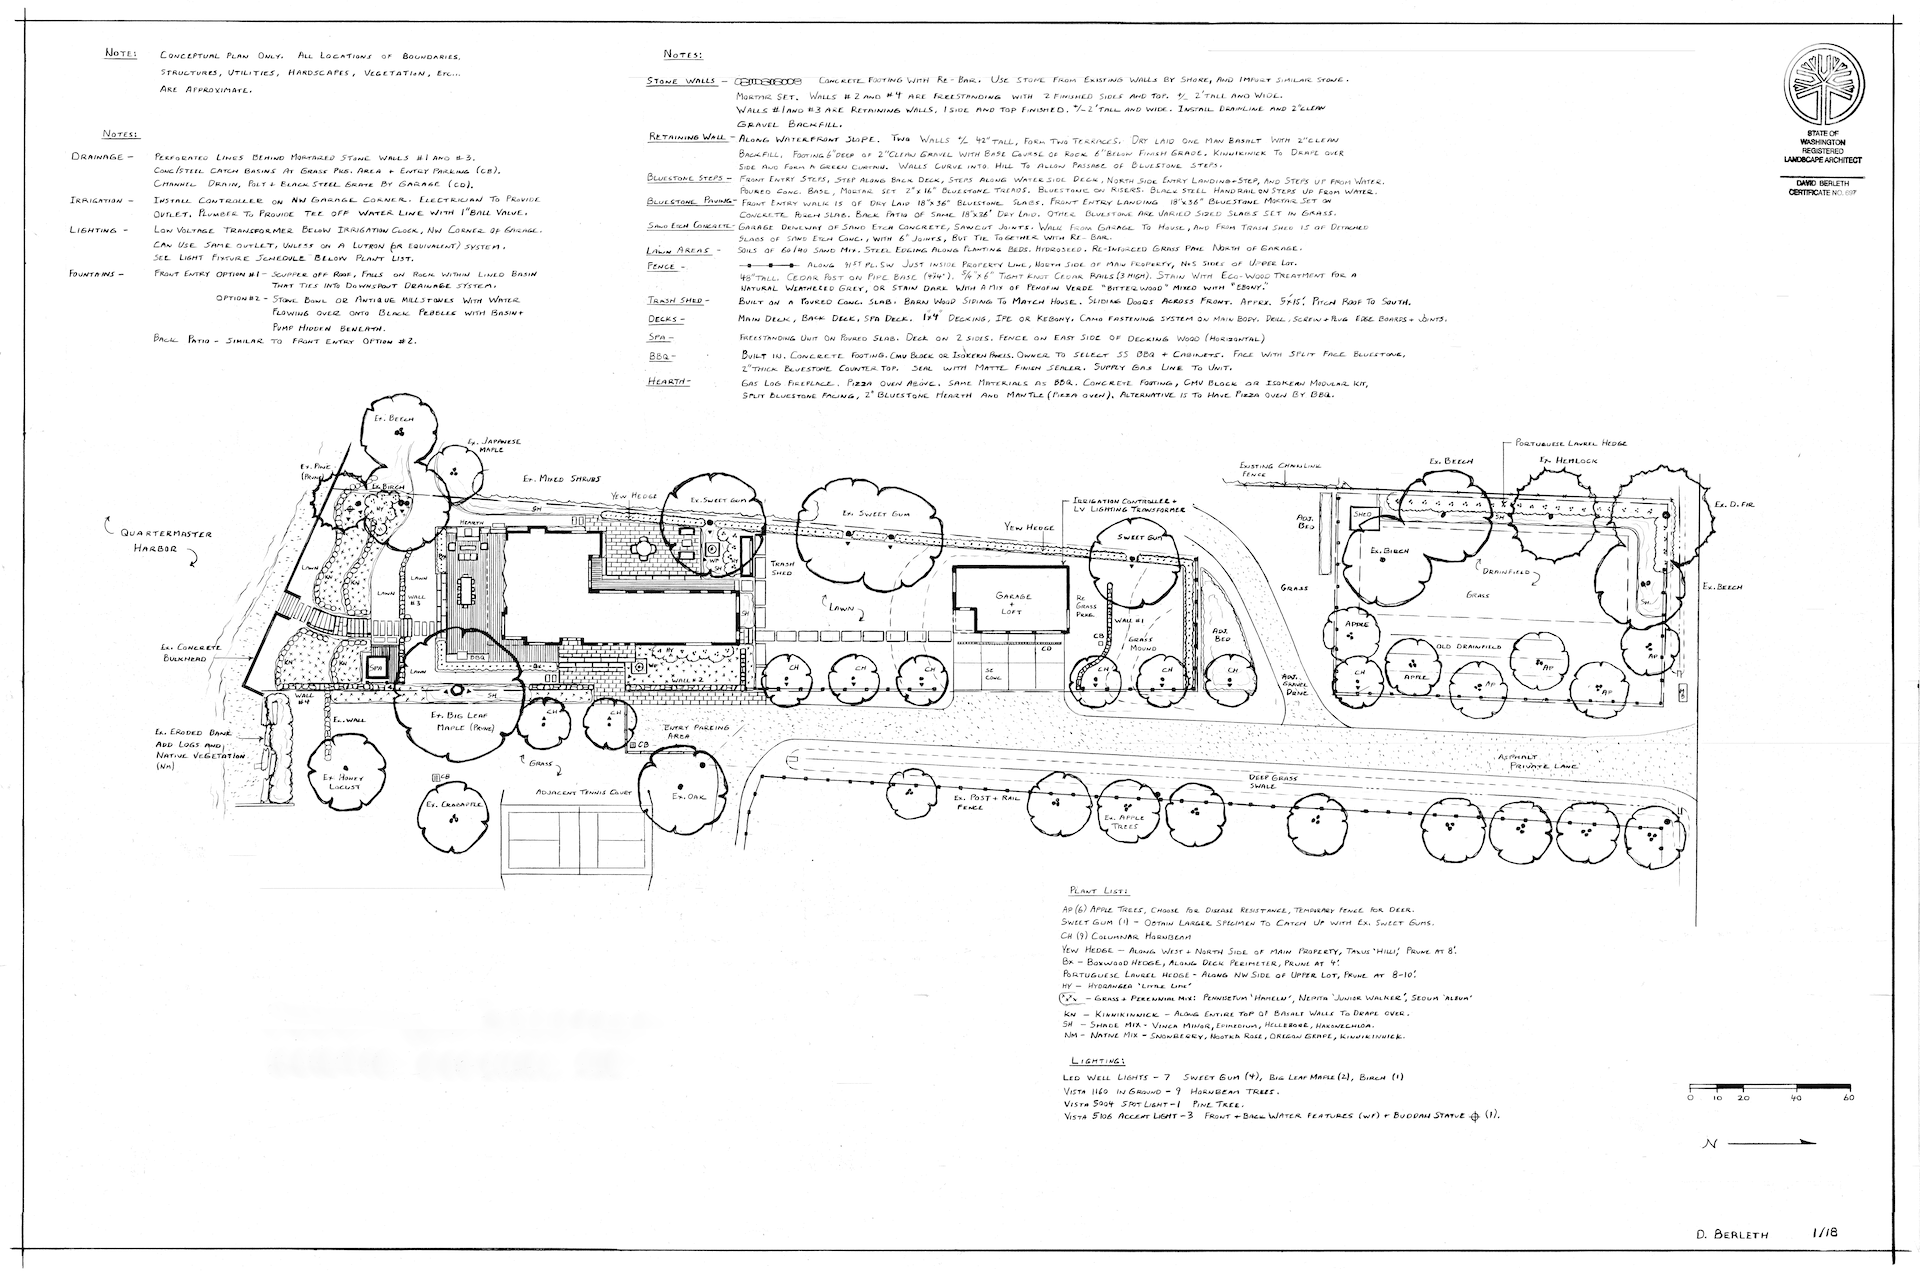 NOTE: CONCEPTUAL PLAN ONLY. ALL LOCATIONS OF BOUNDARIES,
STRUCTURES, UTILITIES, HARDSCAPES, VEGETATION, ETC...
ARE APPROXIMATE.
NOTES:
DRAINAGE - PERFORATED LINES BEHIND MORTARED STONE WALLS #1 AND #3.
CONC/STEEL CATCH BASINS AT GRASS PKG. AREA + ENTRY PARKING (CB).
CHANNEL DRAIN, POLY + BLACK STEEL GRATE BY GARAGE (CD).
IRRIGATION - INSTALL CONTROLLER ON NW GARAGE CORNER. ELECTRICIAN TO PROVIDE
OUTLET. PLUMBER TO PROVIDE TEE OFF WATER LINE WITH 1" BALL VALVE.
LIGHTING - LOW VOLTAGE TRANSFORMER BELOW IRRIGATION CLOCK, NW CORNER OF GARAGE.
CAN USE SAME OUTLET, UNLESS ON A LUTRON (OR EQUIVALENT) SYSTEM.
SEE LIGHT FIXTURE SCHEDULE BELOW PLANT LIST.
FOUNTAINS - FRONT ENTRY OPTION #1 - SCUPPER OFF ROOF, FALLS ON ROCK WITHIN LINED BASIN
THAT TIES INTO DOWNSPOUT DRAINAGE SYSTEM.
OPTION #2 - STONE BOWL OR ANTIQUE MILLSTONES WITH WATER
FLOWING OVER ONTO BLACK PEBBLES WITH BASIN +
PUMP HIDDEN BENEATH.
BACK PATIO - SIMILAR TO FRONT ENTRY OPTION #2.
NOTES:
STONE WALLS - CONCRETE FOOTING WITH RE-BAR. USE STONE FROM EXISTING WALLS BY SHORE, AND IMPORT SIMILAR STONE.
MORTAR SET. WALLS #2 AND #4 ARE FREESTANDING WITH 2 FINISHED SIDES AND TOP. +/- 2' TALL AND WIDE.
WALLS #1 AND #3 ARE RETAINING WALLS, 1 SIDE AND TOP FINISHED. +/- 2' TALL AND WIDE. INSTALL DRAINLINE AND 2" CLEAN
GRAVEL BACKFILL.
RETAINING WALL - ALONG WATERFRONT SLOPE. TWO WALLS +/- 42" TALL, FORM TWO TERRACES. DRY LAID ONE MAN BASALT WITH 2" CLEAN
BACKFILL. FOOTING 6" DEEP OF 2" CLEAN GRAVEL WITH BASE COURSE OF ROCK 6" BELOW FINISH GRADE. KINNIKINICK TO DRAPE OVER
SIDE AND FORM A GREEN CURTAIN. WALLS CURVE INTO HILL TO ALLOW PASSAGE OF BLUESTONE STEPS.
BLUESTONE STEPS - FRONT ENTRY STEPS, STEP ALONG BACK DECK, STEPS ALONG WATER SIDE DECK, NORTH SIDE ENTRY LANDING + STEP, AND STEPS UP FROM WATER.
POURED CONC. BASE, MORTAR SET 2" x 16" BLUESTONE TREADS. BLUESTONE ON RISERS. BLACK STEEL HANDRAIL ON STEPS UP FROM WATER.
BLUESTONE PAVING - FRONT ENTRY WALK IS OF DRY LAID 18"x36" BLUESTONE SLABS. FRONT ENTRY LANDING 18"x36" BLUESTONE MORTAR SET ON
CONCRETE PORCH SLAB. BACK PATIO OF SAME 18"x36" DRY LAID. OTHER BLUESTONE ARE VARIED SIZED SLABS SET IN GRASS.
SAND ETCH CONCRETE - GARAGE DRIVEWAY OF SAND ETCH CONCRETE, SAWCUT JOINTS. WALK FROM GARAGE TO HOUSE, AND FROM TRASH SHED IS OF DETACHED
SLABS OF SAND ETCH CONC., WITH 6" JOINTS, BUT TIE TOGETHER WITH RE-BAR.
LAWN AREAS - SOILS OF 60/40 SAND MIX. STEEL EDGING ALONG PLANTING BEDS. HYDROSEED. RE-INFORCED GRASS PAVE NORTH OF GARAGE.
FENCE - ALONG 91ST PL. SW JUST INSIDE PROPERTY LINE, NORTH SIDE OF MAIN PROPERTY, N+S SIDES OF UPPER LOT.
48" TALL. CEDAR POST ON PIPE BASE (4"x4"). 5/4"x6" TIGHT KNOT CEDAR RAILS (3 HIGH). STAIN WITH ECO-WOOD TREATMENT FOR A
NATURAL WEATHERED GREY, OR STAIN DARK WITH A MIX OF PENOFIN VERDE "BITTERWOOD" MIXED WITH "EBONY."
TRASH SHED - BUILT ON A POURED CONC. SLAB. BARN WOOD SIDING TO MATCH HOUSE. SLIDING DOORS ACROSS FRONT. APPRX. 5'x15'. PITCH ROOF TO SOUTH.
DECKS - MAIN DECK, BACK DECK, SPA DECK. 1"x4" DECKING, IPE OR KEBONY. CAMO FASTENING SYSTEM ON MAIN BODY. DRILL, SCREW + PLUG EDGE BOARDS + JOINTS.
SPA - FREESTANDING UNIT ON POURED SLAB. DECK ON 2 SIDES. FENCE ON EAST SIDE OF DECKING WOOD (HORIZONTAL)
BBQ - BUILT IN. CONCRETE FOOTING. CMU BLOCK OR ISOKERN PANELS. OWNER TO SELECT SS BBQ + CABINETS. FACE WITH SPLIT FACE BLUESTONE,
2" THICK BLUESTONE COUNTER TOP. SEAL WITH MATTE FINISH SEALER. SUPPLY GAS LINE TO UNIT.
HEARTH - GAS LOG FIREPLACE. PIZZA OVEN ABOVE. SAME MATERIALS AS BBQ. CONCRETE FOOTING, CMU BLOCK OR ISOKERN MODULAR KIT,
SPLIT BLUESTONE FACING, 2" BLUESTONE HEARTH AND MANTLE (PIZZA OVEN). ALTERNATIVE IS TO HAVE PIZZA OVEN BY BBQ.
STATE OF
WASHINGTON
REGISTERED
LANDSCAPE ARCHITECT
DAVID BERLETH
CERTIFICATE NO. 697
EX. BEECH
EX. JAPANESE
MAPLE
EX. PINE
(PRUNE)
EX. BIRCH
EX. MIXED SHRUBS
YEW HEDGE
EX. SWEET GUM
EX. SWEET GUM
YEW HEDGE
IRRIGATION CONTROLLER +
LV LIGHTING TRANSFORMER
SWEET GUM
EXISTING CHAINLINK
FENCE
PORTUGUESE LAUREL HEDGE
EX. BEECH
EX. HEMLOCK
EX. D. FIR
QUARTERMASTER
HARBOR
HY
SH
HEARTH
WF
SH
HY
TRASH
SHED
LAWN
LAWN
LAWN
LAWN
KN
KN
WALL
#3
SH
LAWN
GARAGE
+
LOFT
RE
GRASS
PRKG.
WALL #1
CB
GRASS
MOUND
CD
SC
CONC
ADJ.
BED
GRASS
ADJ.
BED
SHED
SH
EX. BIRCH
DRAINFIELD
GRASS
EX. BEECH
SH
APPLE
OLD DRAINFIELD
APPLE
AP
AP
AP
AP
CH
EX. CONCRETE
BULKHEAD
KN
KN
SPA
LAWN
BBQ
BX
WF
HY
WALL #2
CH
CH
CH
CH
CH
CH
ADJ.
GRAVEL
DRIVE
WALL
#4
EX. WALL
SH
EX. BIG LEAF
MAPLE (PRUNE)
CH
CH
CB
ENTRY PARKING
AREA
EX. ERODED BANK
ADD LOGS AND
NATIVE VEGETATION
(NM)
EX. HONEY
LOCUST
CB
EX. CRABAPPLE
GRASS
ADJACENT TENNIS COURT
EX. OAK
EX. POST + RAIL
FENCE
EX. APPLE
TREES
DEEP GRASS
SWALE
ASPHALT
PRIVATE LANE
PLANT LIST:
AP (6) APPLE TREES, CHOOSE FOR DISEASE RESISTANCE, TEMPORARY FENCE FOR DEER.
SWEET GUM (1) - OBTAIN LARGER SPECIMEN TO CATCH UP WITH EX. SWEET GUMS.
CH (9) COLUMNAR HORNBEAM
YEW HEDGE - ALONG WEST + NORTH SIDE OF MAIN PROPERTY, TAXUS 'HILLI', PRUNE AT 8'.
BX - BOXWOOD HEDGE, ALONG DECK PERIMETER, PRUNE AT 4'.
PORTUGUESE LAUREL HEDGE - ALONG NW SIDE OF UPPER LOT, PRUNE AT 8-10'.
HY - HYDRANGEA 'LITTLE LIME'
- GRASS + PERENNIAL MIX: PENNISETUM 'HAMELN', NEPITA 'JUNIOR WALKER', SEDUM 'ALBUM'
KN - KINNIKINNICK - ALONG ENTIRE TOP OF BASALT WALLS TO DRAPE OVER.
SH - SHADE MIX - VINCA MINOR, EPIMEDIUM, HELLEBORE, HAKONECHLOA.
NM - NATIVE MIX - SNOWBERRY, NOOTKA ROSE, OREGON GRAPE, KINNIKINNICK.
LIGHTING:
LED WELL LIGHTS - 7 SWEET GUM (4), BIG LEAF MAPLE (2), BIRCH (1)
VISTA 1160 IN GROUND - 9 HORNBEAM TREES.
VISTA 5004 SPOT LIGHT - 1 PINE TREE.
VISTA 5106 ACCENT LIGHT - 3 FRONT + BACK WATER FEATURES (WF) + BUDDAH STATUE (1).
0 10 20 40 60
N
D. BERLETH 1/18